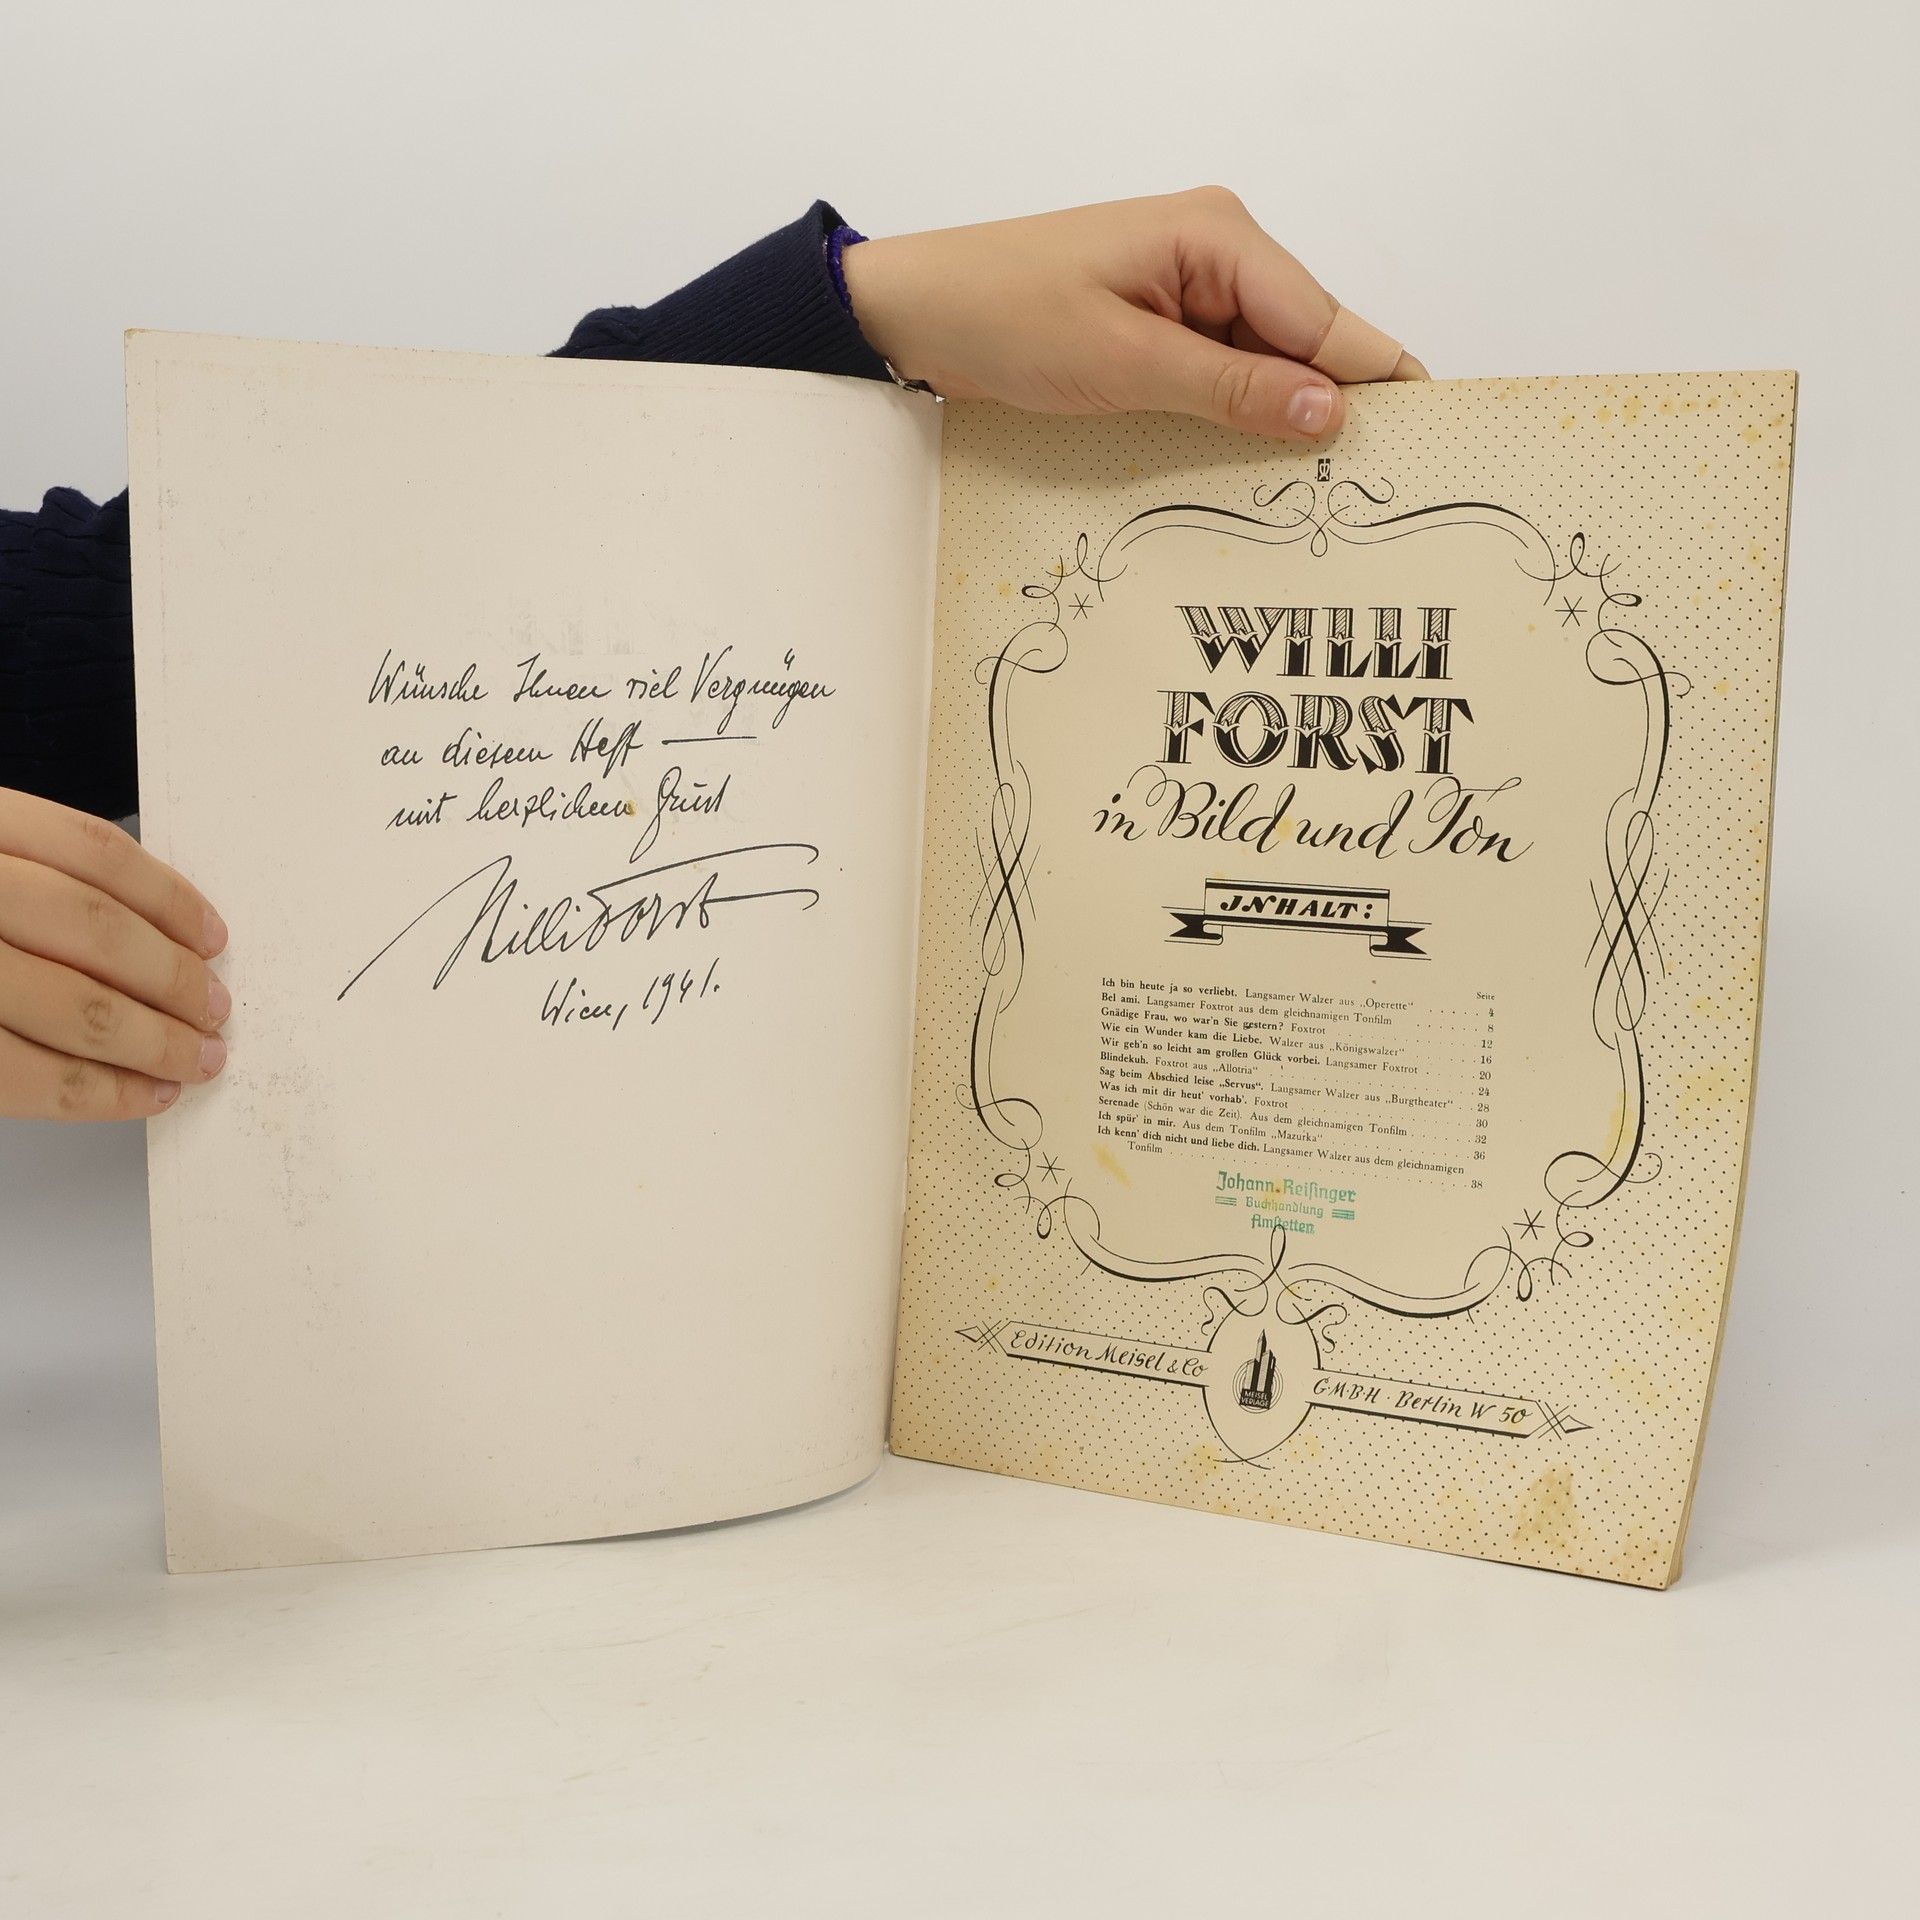 Wünsche Ihnen viel Vergnügen
an diesem Heft —
mit herzlichem Gruß
Willi Forst
Wien, 1941.
WILLI
FORST
in Bild und Ton
INHALT:
Seite
Ich bin heute ja so verliebt. Langsamer Walzer aus „Operette“ . . . . . 4
Bel ami. Langsamer Foxtrot aus dem gleichnamigen Tonfilm . . . . . 8
Gnädige Frau, wo war'n Sie gestern? Foxtrot . . . . . 12
Wie ein Wunder kam die Liebe. Walzer aus „Königswalzer“ . . . . . 16
Wir geh'n so leicht am großen Glück vorbei. Langsamer Foxtrot . . . . . 20
Blindekuh. Foxtrot aus „Allotria“ . . . . . 24
Sag beim Abschied leise „Servus“. Langsamer Walzer aus „Burgtheater“ . . 28
Was ich mit dir heut' vorhab'. Foxtrot . . . . . 30
Serenade (Schön war die Zeit). Aus dem gleichnamigen Tonfilm . . . . . 32
Ich spür' in mir. Aus dem Tonfilm „Mazurka“ . . . . . 36
Ich kenn' dich nicht und liebe dich. Langsamer Walzer aus dem gleichnamigen
Tonfilm . . . . . 38
Johann Reisinger
Buchhandlung
Amstetten
Edition Meisel & Co G·M·B·H · Berlin W 50
MEISEL
VERLAGE